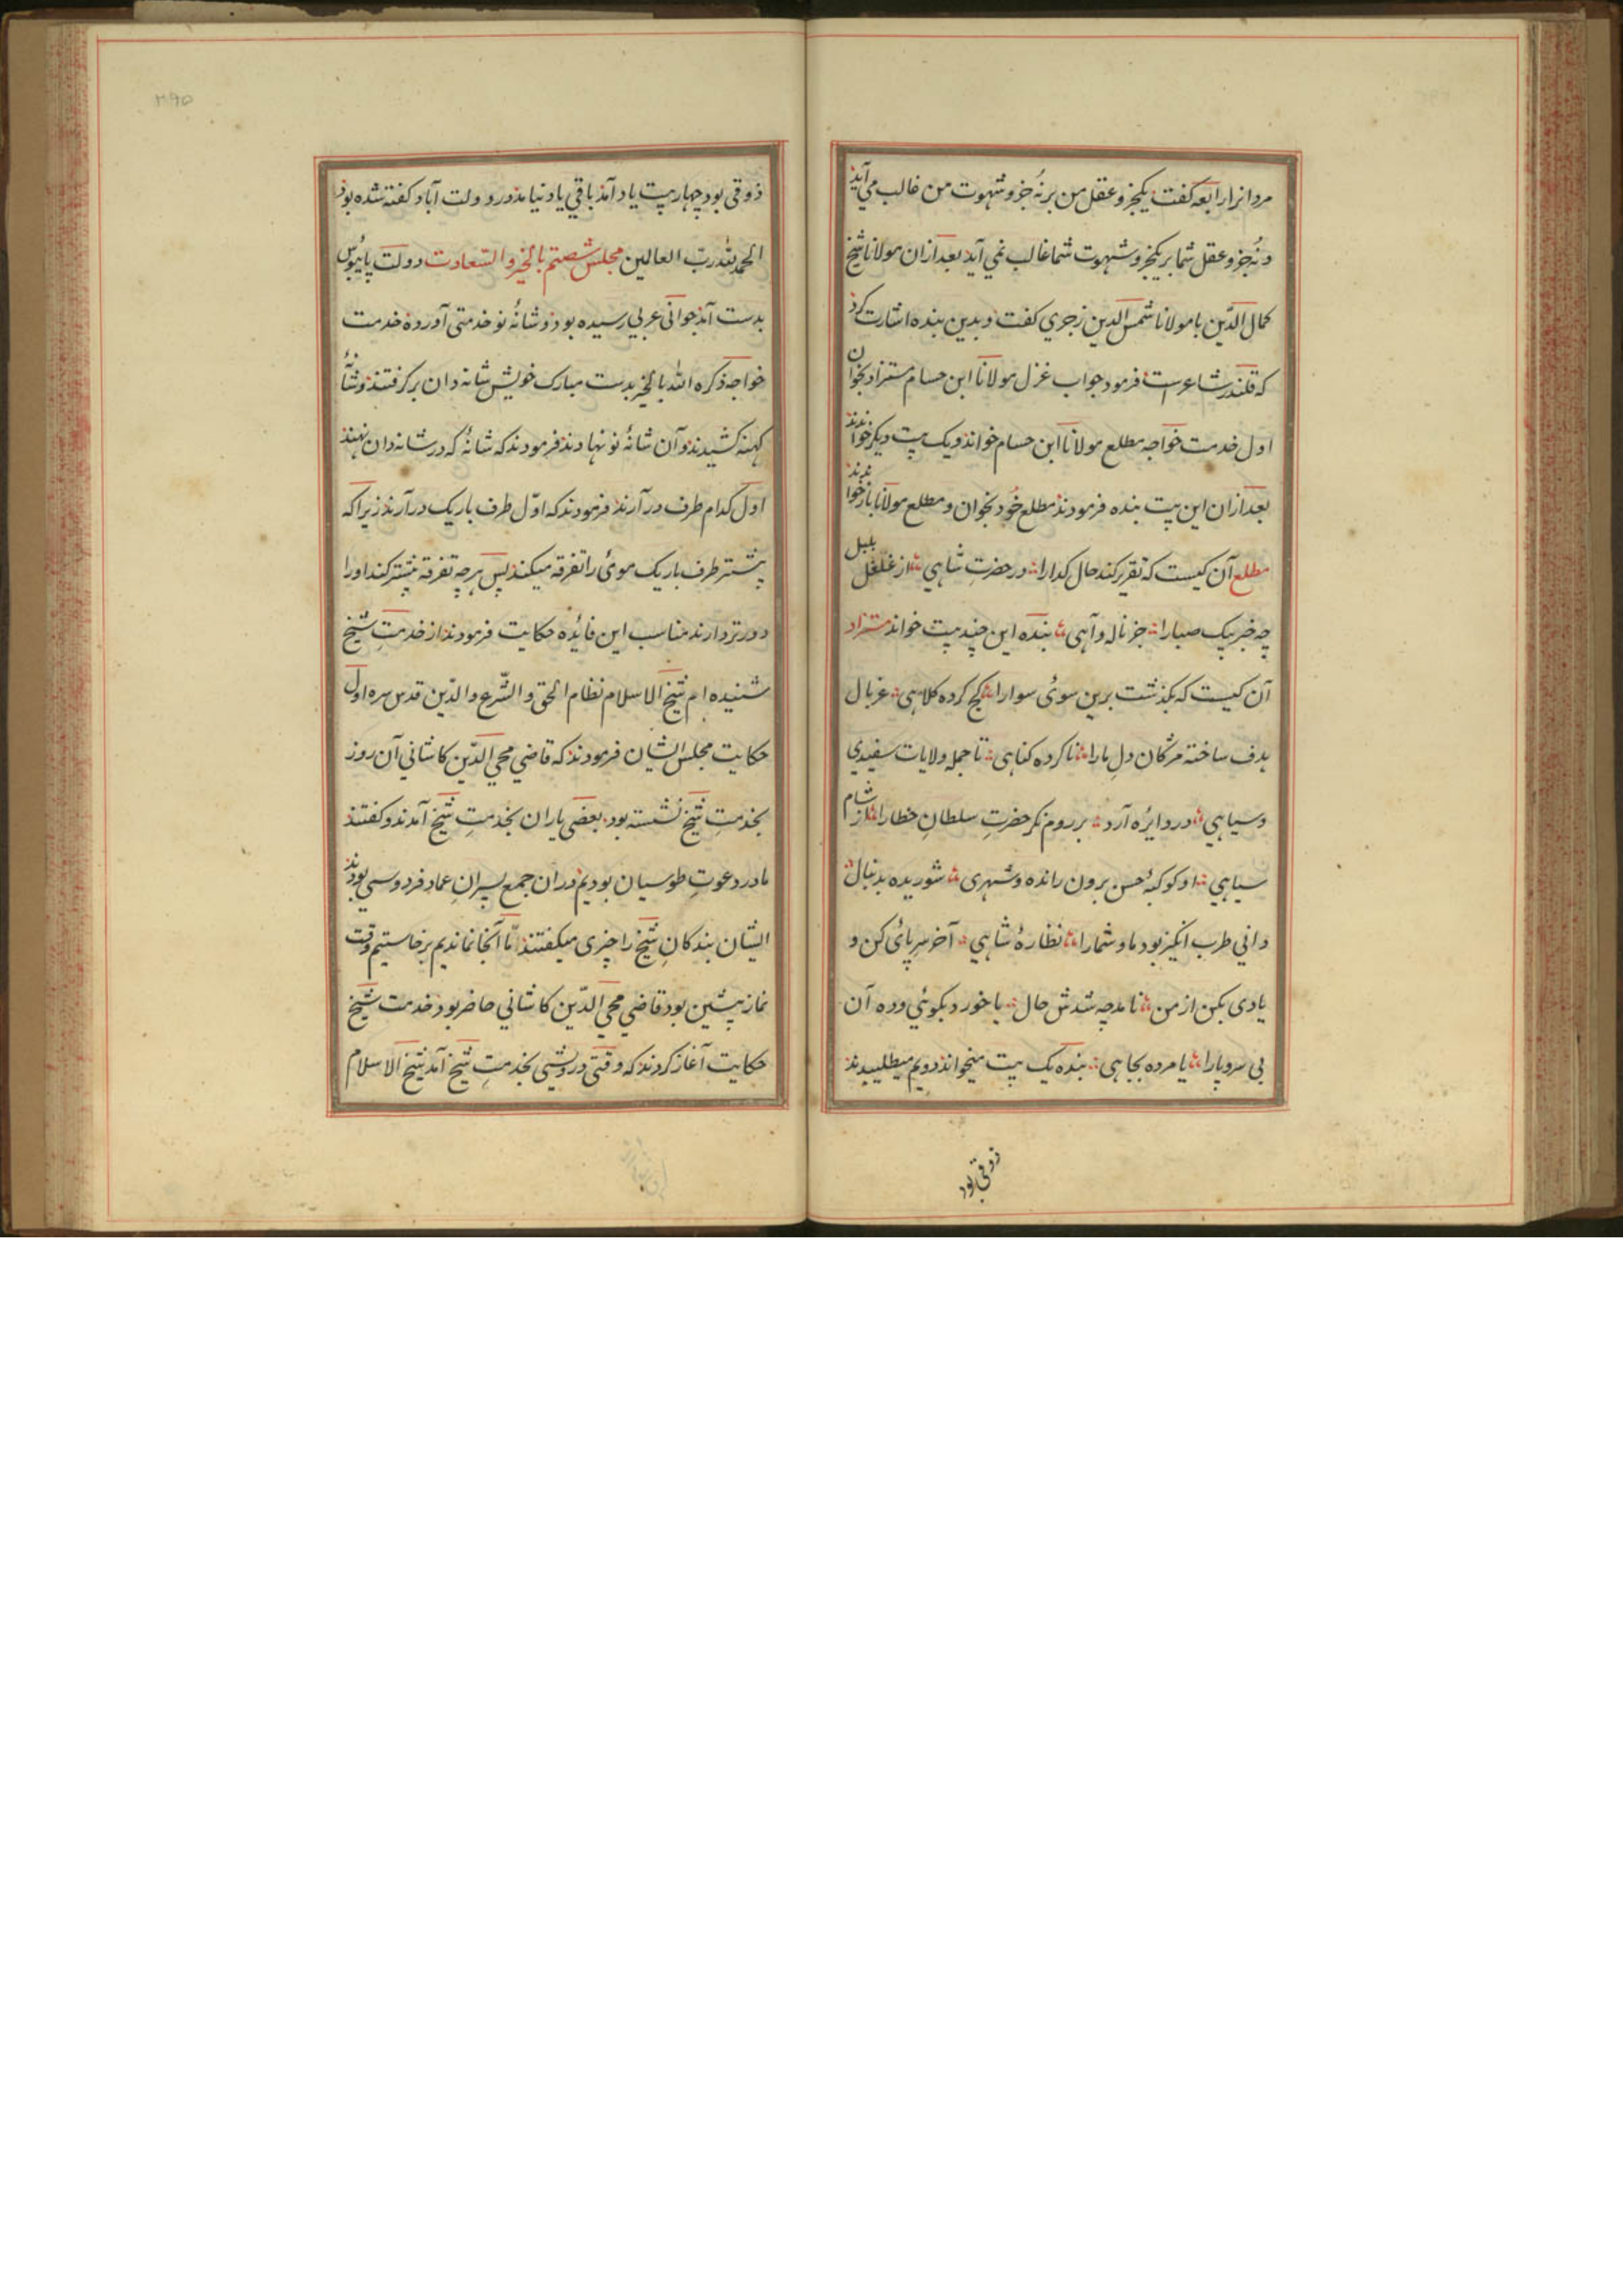 مردانرا رابعه گفت یکجزو عقل من برنُه جزو شهوت من غالب می آید
و نُه جزو عقل شما بر یکجزو شهوت شما غالب نمی آید بعد ازان مولانا شیخ
کمال الدّین با مولانا شمس الدین زجری گفت و بدین بنده اشارت کرد
که قلندر شاعر است فرمود جواب غزل مولانا ابن حسام مستزاد بخوان
اول خدمت خواجه مطلع مولانا ابن حسام خواندند و یک بیت دیگر خواندند
بعد ازان این بیت بنده فرمودند مطلع خود بخوان و مطلع مولانا باز خواندند
مطلع آن کیست که تقریر کند حال گدا را در حضرت شاهی از غلغل بلبل
چه خبر پیک صبا را جز ناله و آهی بنده این چند بیت خواند مستزاد
آن کیست که بگذشت برین سوی سوارا کج کرده کلاهی غربال
هدف ساخته مژگان دل یارا ناکرده گناهی تا جمله ولایات سفیدی
و سیاهی در دایره آرد بر روم نگر حضرت سلطان خطا را از شام
سیاهی او کوکبهٔ حسن برون رانده و شهری شوریده بدنبال
دانی طرب انگیز بود ما و شما را نظارهٔ شاهی آخر سر پای کن و
یادی بکن از من نامد چه شدش حال یا خورد بکوئی وده آن
بی سر و پا را یا مرده بجاهی بنده یک بیت میخواند دویم میطلبیدند
ذوقی بود
ذوقی بود چهار بیت یاد آمد باقی یاد نیامد در دولت آباد گفته شده بود
الحمد لله ربّ العالمین مجلس شصتم بالخیر و السّعادت دولت پایبوس
بدست آمد جوانی عربی رسیده بود و شانهٔ نو خدمتی آورده خدمت
خواجه ذکره الله بالخیر بدست مبارک خویش شانه دان برگرفتند و شانهٔ
کهنه کشیدند و آن شانهٔ نو نهادند فرمودند که شانهٔ که در شانه دان نهند
اول کدام طرف در آرند فرمودند که اوّل طرف باریک در آرند زیرا که
بیشتر طرف باریک موی را تفرقه میکند پس هرچه تفرقه بیشتر کند او را
دورتر دارند مناسب این فائده حکایت فرمودند از خدمت شیخ
شنیده ام شیخ الاسلام نظام الحق و الشّرع و الدّین قدس سره اول
حکایت مجلس ایشان فرمودند که قاضی محی الدّین کاشانی آن روز
بخدمتِ شیخ نشسته بود بعضی یاران بخدمتِ شیخ آمدند و گفتند
ما در دعوتِ طوسیان بودیم دران جمع پسرانِ عماد فردوسی بودند
ایشان بندگانِ شیخ را چیزی میگفتند امّا آنجا نماندیم برخاستیم وقت
نماز پیشین بود قاضی محی الدّین کاشانی حاضر بود خدمت شیخ
حکایت آغاز کردند که وقتی درویشی بخدمتِ شیخ آمد شیخ الاسلام